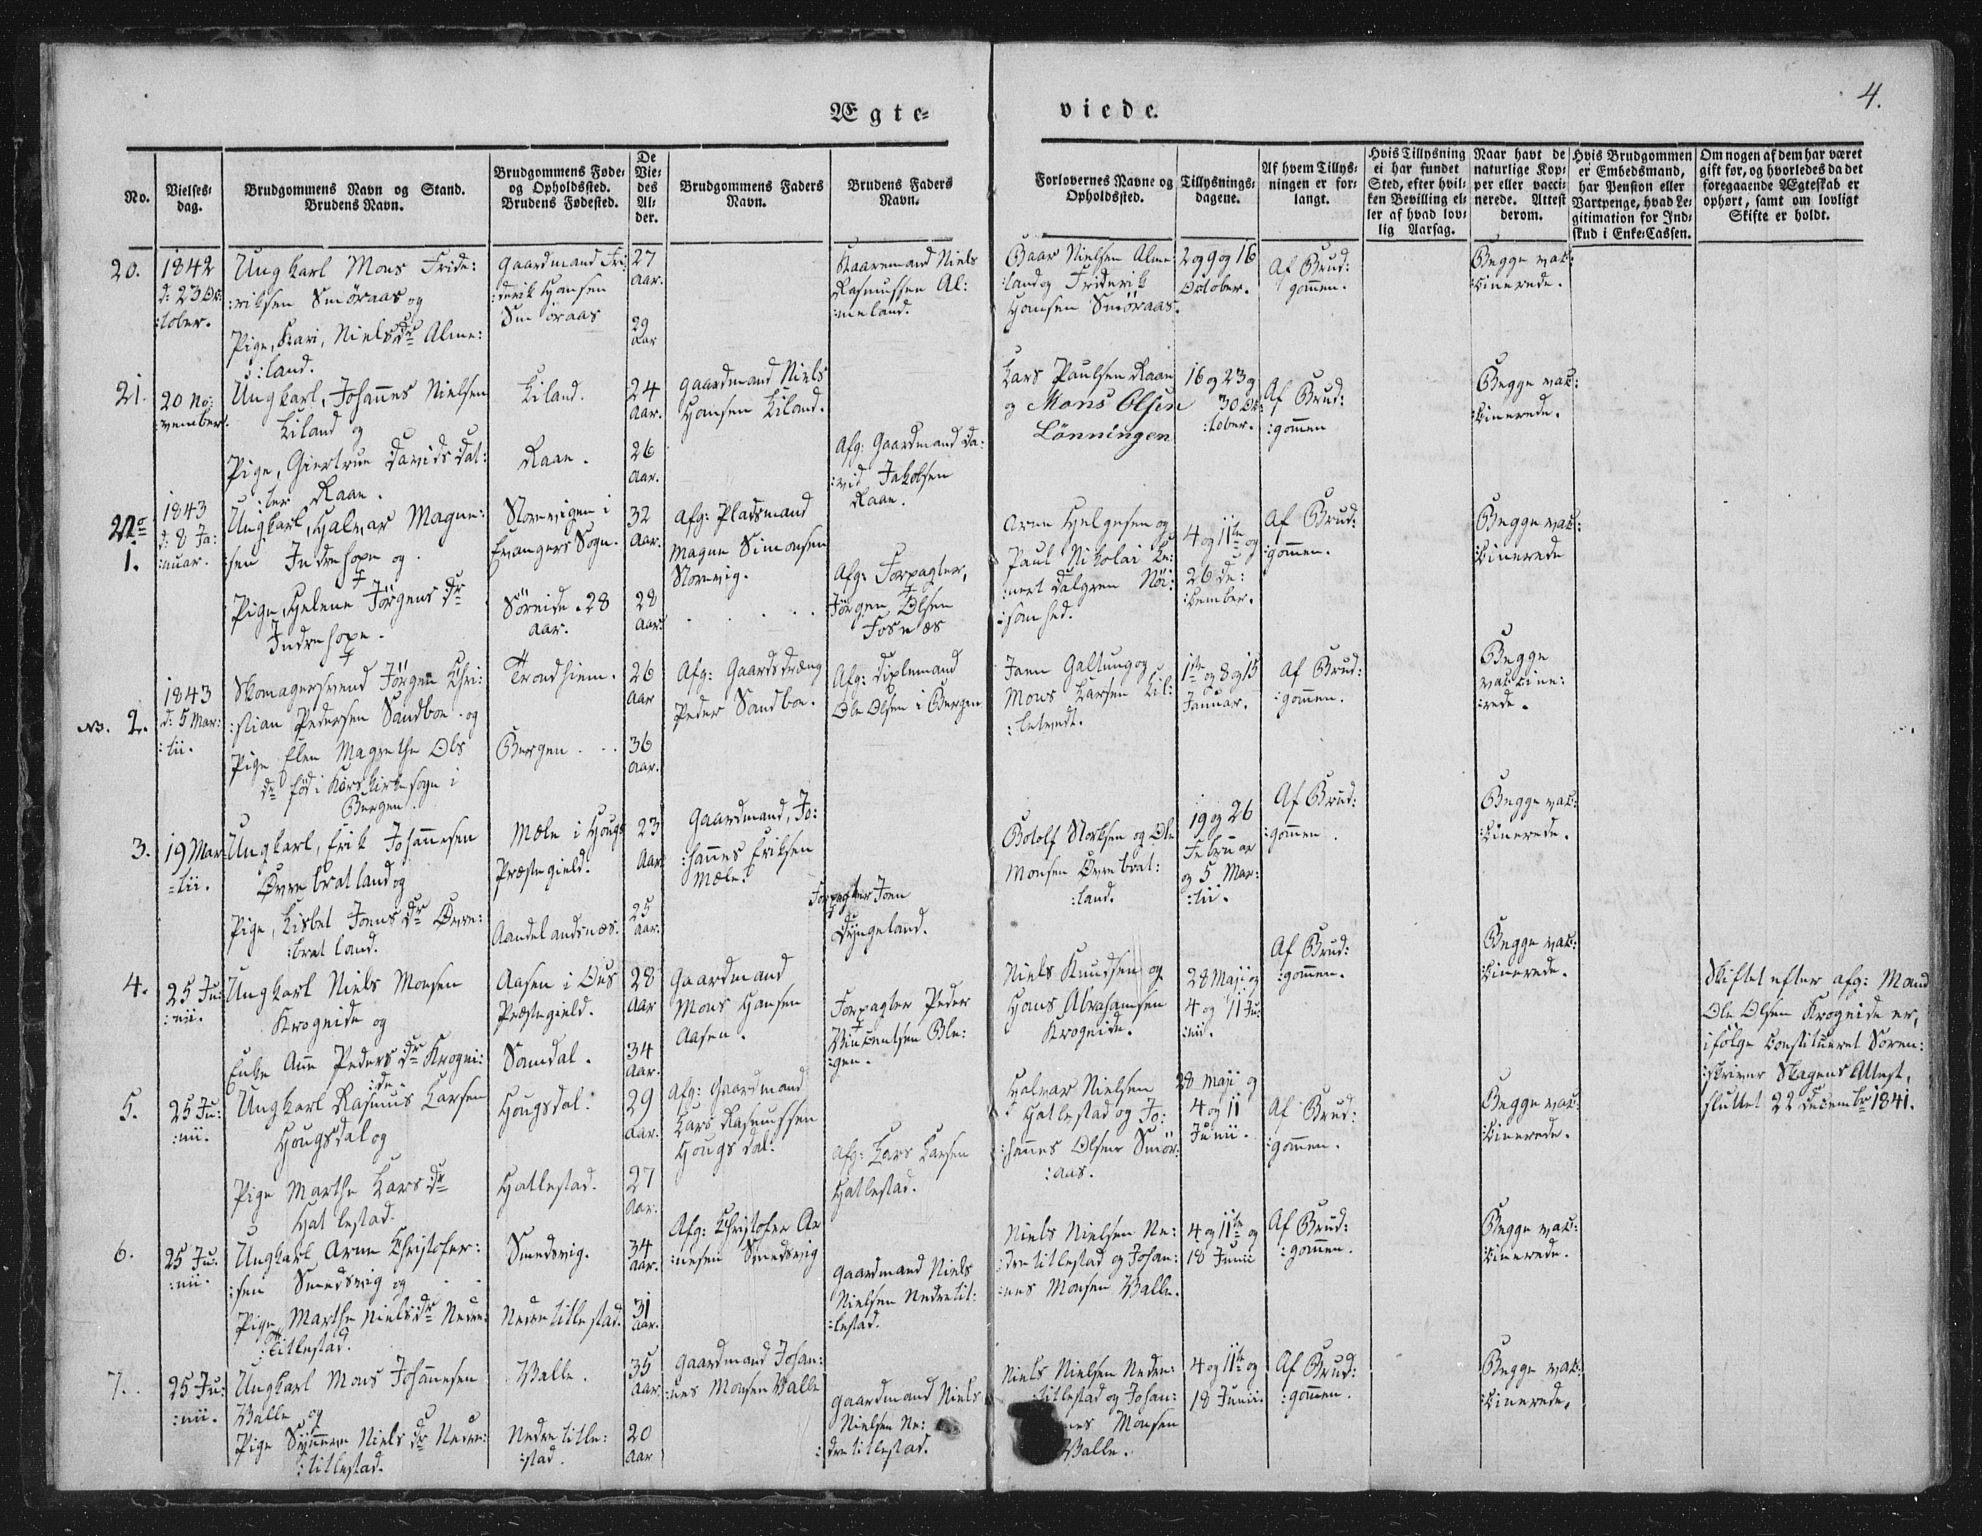 4.
Ægte-
viede.
No.
Vielses-
dag.
Brudgommens Navn og Stand.
Brudens Navn.
Brudgommens Føde-
og Opholdssted.
Brudens Fødested.
De
Vie-
des
Al-
der.
Brudgommens Faders
Navn.
Brudens Faders
Navn.
Forlovernes Navne og
Opholdssted.
Tillysnings-
dagene.
Af hvem Tillys-
ningen er for-
langt.
Hvis Tillysning
ei har fundet
Sted, efter hvil-
ken Bevilling el-
ler af hvad lov-
lig Aarsag.
Naar havt de
naturlige Kop-
per eller vacci-
nerede. Attest
derom.
Hvis Brudgommen
er Embedsmand,
har Pension eller
Vartpenge, hvad Le-
gitimation for Ind-
skud i Enke-Cassen.
Om nogen af dem har været
gift før, og hvorledes da det
foregaaende Ægteskab er
ophørt, samt om lovligt
Skifte er holdt.
20.
1842
d: 23 Oc:
:tober.
Ungkarl Mons Fride:
:riksen Smøraas og
Pige, Kari, Niels dr Alme:
:land.
Gaardmand Fri:
:derik Hansen
Smøraas
27
Aar.
29
Aar
Kaaremand Niels
Rasmussen Al:
:meland.
Baar Nielsen Alme:
:land og Friderik
Hansen Smøraas.
2 og 9 og 16
October.
Af Brud:
gommen.
Begge vak:
:cinerede.
21.
20 No:
:vember.
Ungkarl, Johannes Nielsen
Liland og
Pige, Giertrue Davidsdat:
:ter Raae.
Liland.
Raae.
24
Aar.
26
Aar.
Gaardmand Niels
Hansen Liland.
Afg: Gaardmand Da:
:vid Jakobsen
Raae.
Lars Paulsen Raae
og Mons Olsen
Lønningen
16 og 23 og
30 Oc:
:tober.
Af Brud:
:gommen
Begge vak:
:cinerede.
No
1.
1843
d: 8 Ja:
:nuar.
Ungkarl, Halvar Magne:
:sen Indrehope og
Pige, Helene Jørgens dr
Indrehope.
Norevigen i
Evanger Sogn.
Søreide. 28
Aar.
32
Aar.
28
Aar.
Afg: Pladsmand
Magne Simonsen
Norevig.
Afg: Forpagter,
Jørgen Olsen
Fosnæs
Arne Helgesen og
Paul Nikolai Le:
:nert Dalgren Nøi:
:somhed.
4 og 11te og
26 De:
:cember.
Af Brud:
:gommen.
Begge vak:
:cinerede
No. 2.
1843
d: 5 Mar:
:tii.
Skomagersvend Jørgen Chri:
:stian Pedersen Sandboe. og
Pige Elen Magrethe Ols
dr født i Korskirkesogn i
Bergen.
Trondhiem.
Bergen.
26
Aar
36
Aar.
Afg: Gaardsdræng
Peder Sandboe.
Afg:
Ole Olsen i Bergen
Joen Galtung og
Mons Larsen Lil:
:letvedt.
1te og 8 og 15
Januar.
Af Brud:
:gommen.
Begge
vakcine:
:rede.
3.
19 Mar
:tii.
Ungkarl, Erik Johannesen
Øvrebratland og
Pige, Lisbet Joens dr Øvre:
:bratland.
Mæle i Hougs
Præstegield.
Aadelandsnæs.
23
Aar
25
Aar.
Gaardmand, Jo:
:hannes Eriksen
Mæle.
Forpagter Joen
Dyngeland.
Botolf Storksen og Ole
Monsen Øvrebrat:
:land.
19 og 26
Februar
og 5 Mar:
:tii.
Af Brud:
:gommen.
Begge vak:
:cinerede.
4.
25 Ju:
:nii.
Ungkarl Niels Monsen
Krogeide og
Enke Ane Peders dr Krogei:
:de.
Aasen i Ous
Præstegield.
Samdal.
28
Aar
34
Aar.
Gaardmand
Mons Hansen
Aasen.
Forpagter Peder
Vincentsen Ble:
:gen.
Niels Knudsen og
Hans Abrahamsen
Krogeide.
28 Maji og
4 og 11 Ju:
:nii.
Af Brud:
:gommen.
Begge vak:
:cinerede.
Skiftet efter afg: Mand
Ole Olsen Krogeide er,
ifølge constitueret Soren:
:skriver Hagens Attest,
sluttet 22 Decembr 1841.
5.
25 Ju:
:nii.
Ungkarl Rasmus Larsen
Hougsdal og
Pige Marthe Lars dr
Hatlestad.
Hougsdal.
Hatlestad.
29
Aar.
27
Aar.
Afg: Gaardmand
Lars Rasmussen
Hougsdal.
Afg: Lars Larsen
Hatlestad.
Halvar Nielsen
Hatlestad og Jo:
:hannes Olsen Smør:
:aas.
28 Maji og
4 og 11
Junii.
Af Brud:
:gommen.
Begge vak:
:cinerede.
6.
25 Ju:
:nii.
Ungkarl Arne Christofer:
:sen Smedsvig og
Pige Marthe Niels dr Nedre:
:titlestad.
Smedsvig.
Nedretitlestad.
34
Aar.
31
Aar.
Afg: Christofer Ar
:nesen Smedsvig
Gaardmand Niels
Nielsen Nedretit:
:lestad.
Niels Nielsen Ne:
:dretitlestad og Johan:
:nes Monsen Valle.
4 og 11te og
18 Junii
Af Brud:
:gommen.
Begge vak:
:cinerede.
7.
25 Ju:
:nii.
Ungkarl Mons Johannesen
Valle og
Pige Synneve Niels dr Nedre:
:titlestad.
Valle.
Nedretitle:
:stad.
35
Aar
20
Aar
Gaardmand Johan:
:nes Monsen Valle
Gaardmand Niels
Nielsen Ne:
:dretitlestad.
Niels Nielsen Nedre:
:titlestad og Johan:
:nes Monsen
Valle.
4 og 11te og
18 Junii.
Af Brud:
:gommen.
Begge vak:
:cinerede.